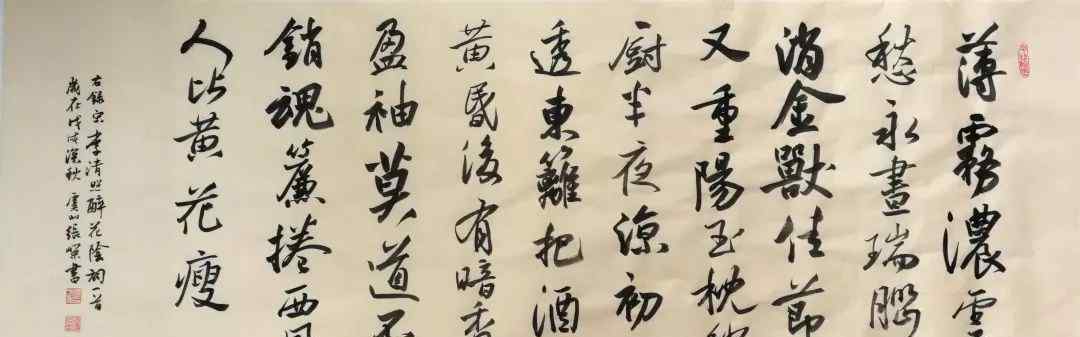 薄霧濃雲
愁永晝瑞腦
消金獸佳節
又重陽玉枕紗
厨半夜涼初
透東籬把酒
黃昏後有暗香
盈袖莫道不
銷魂簾捲西風
人比黃花瘦
右錄宋李清照醉花陰詞一首
歲在戊戌深秋 虞山張書